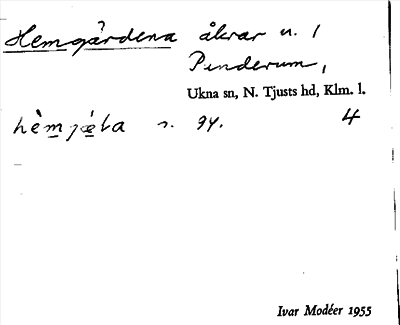 Hemgårdena åkrar u. 1
Pinderum,
Ukna sn, N. Tjusts hd, Klm. l.
s. 94. 4
Ivar Modéer 1955